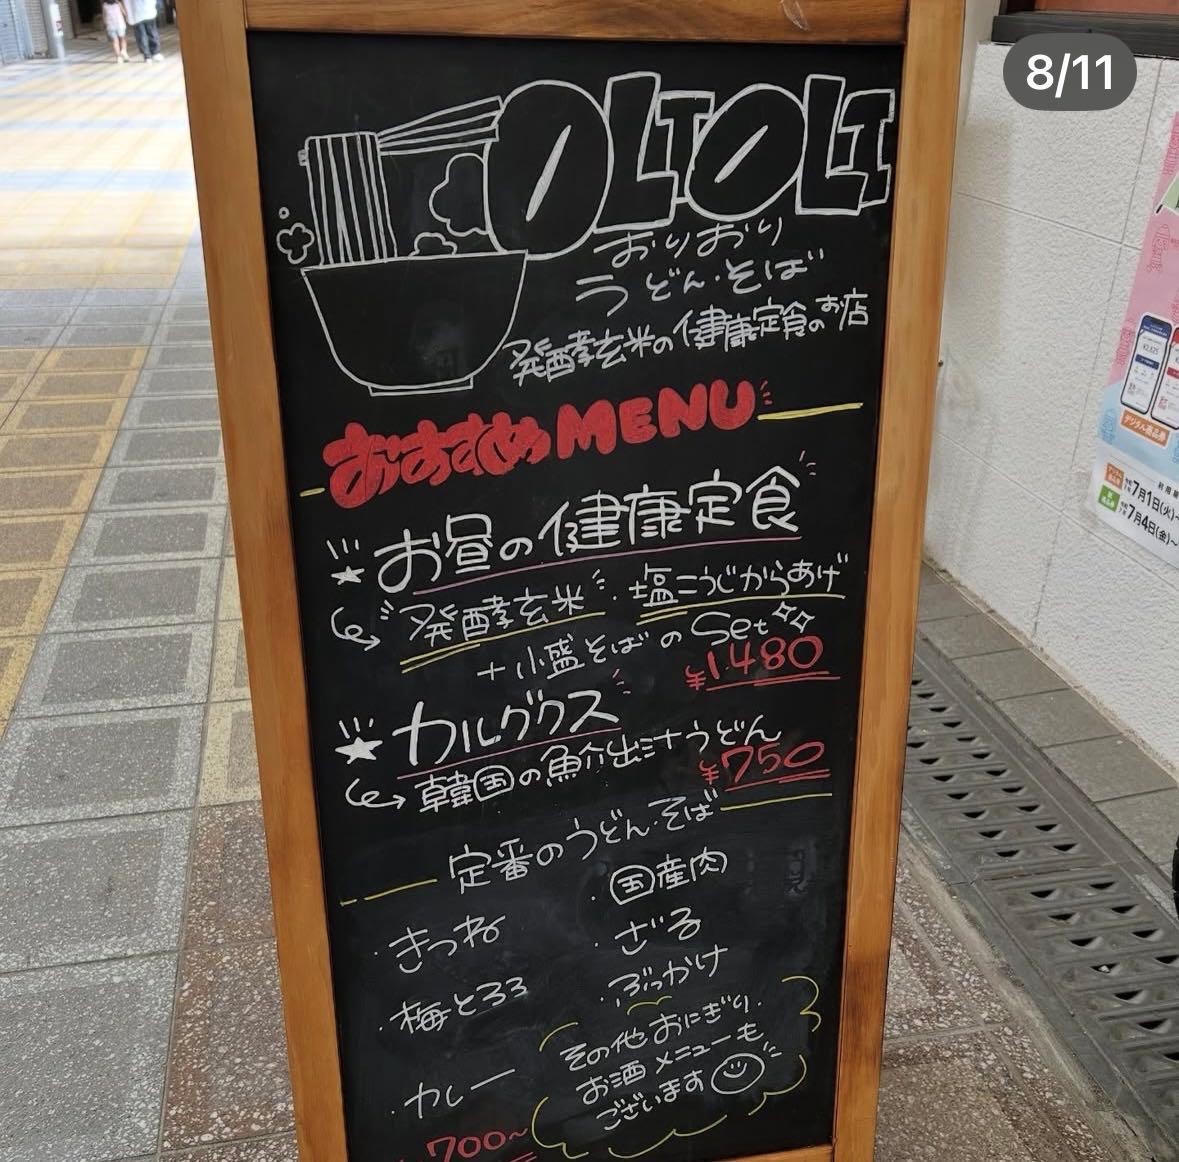 8/11
OLIOLI
おりおり
うどん・そば
発酵玄米の健康定食のお店
おすすめMENU
お昼の健康定食
発酵玄米・塩こうじからあげ
+小盛そばのSet
¥1480
カルグクス
韓国の魚介出汁うどん
¥750
定番のうどん・そば
・きつね
・国産肉
・梅とろろ
・ざる
・ぶっかけ
・カレー
700~
その他おにぎり、
お酒メニューも
ございます
デジタル商品券
7月1日(火)~
7月4日(金)~